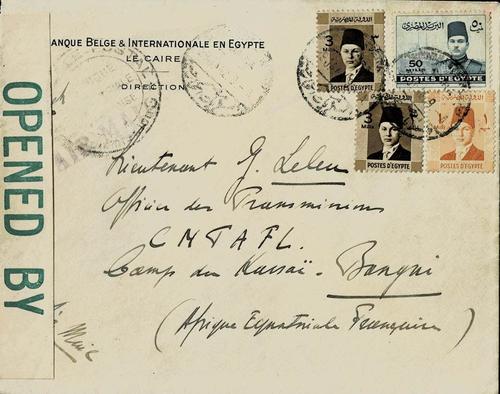 BANQUE BELGE & INTERNATIONALE EN EGYPTE
LE CAIRE
DIRECTION
OPENED BY
3
MILLS
POSTES D'EGYPTE
50
MILLS
POSTES D'EGYPTE
3
MILLS
POSTES D'EGYPTE
1
POSTES D'EGYPTE
Lieutenant G. Leleu
Officier des Transmissions
C M T A F L.
Camp du Kassaï - Bangui
(Afrique Equatoriale Française)
Air Mail